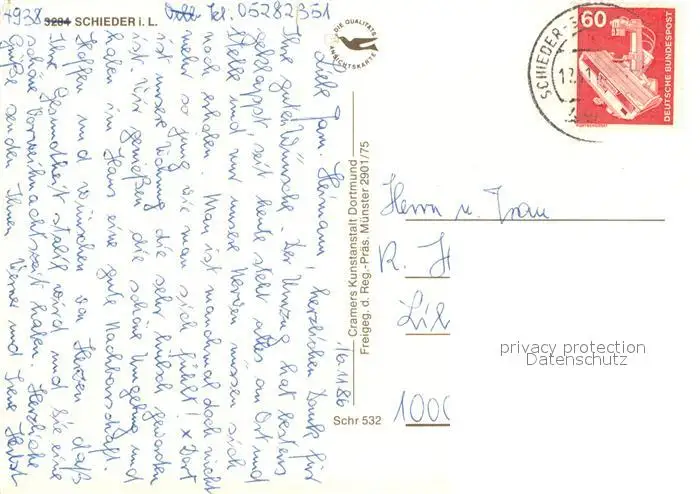 4938 3284 SCHIEDER i. L. Tel. 05282/351
DIE QUALITÄTS
ANSICHTSKARTE
16.11.86
Liebe Fam. Heimann, herzlichen Dank für
Ihre guten Wünsche. Der Umzug hat bestens
geklappt, seit heute steht alles an Ort und
Stelle und nur unsere Nerven müssen sich
noch erholen. Man ist manchmal doch nicht
mehr so jung wie man sich fühlt! x Dort
ist unsere Wohnung die sehr hübsch geworden
ist. Wir genießen die schöne Umgebung und
haben im Haus eine gute Nachbarschaft.
Hoffen und wünschen von Herzen daß
Ihre Gesundheit stabil wird und Sie eine
schöne Vorweihnachtszeit haben. Herzliche
Grüße senden Ihnen Werner und Irene Herbst
Cramers Kunstanstalt Dortmund
Freigeg. d. Reg.-Präs. Münster 2901/75
Schr 532
SCHIEDER-
60
DEUTSCHE BUNDESPOST
Herrn u. Frau
R. H
Lil
1000
privacy protection
Datenschutz